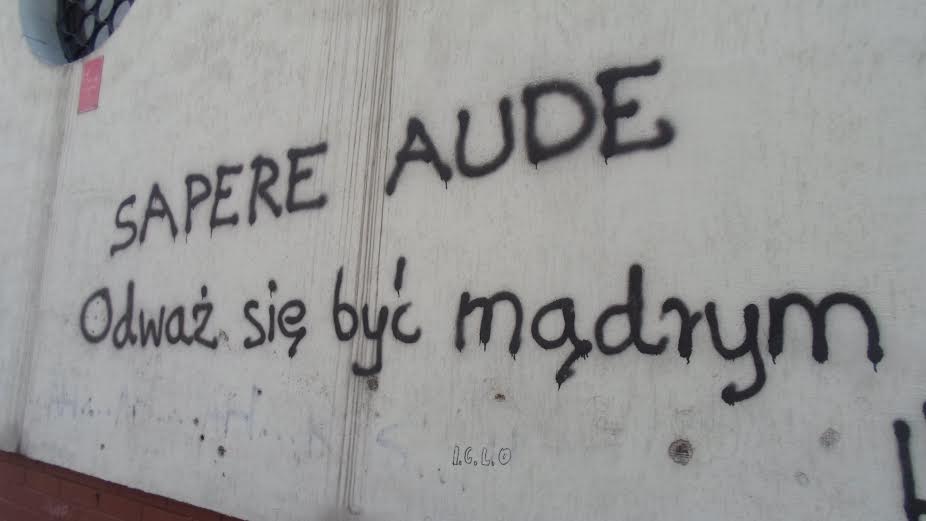 SAPERE AUDE
Odważ się być mądrym
I.G.L.O